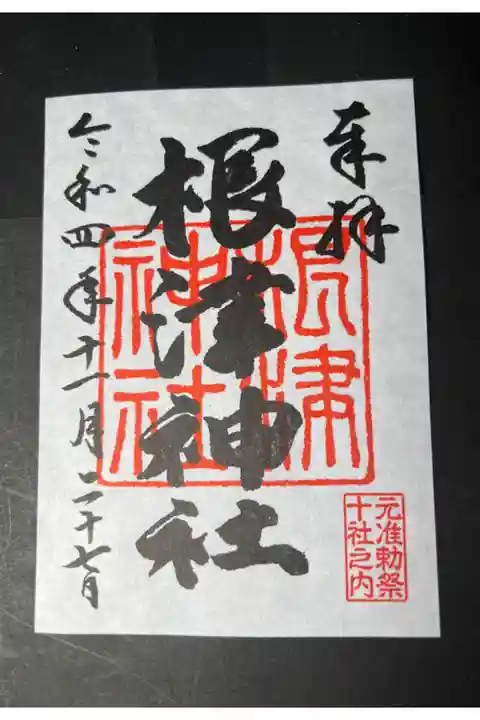 奉拝
根津神社
根津
神社
元准勅祭
十社之内
令和四年十一月二十七日